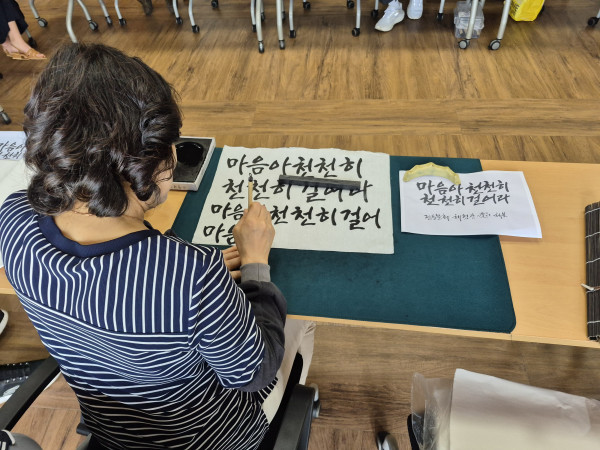 마음아 천천히
천천히 걸어라
마음아 천천히 걸어
마음
마음아 천천히
천천히 걸어라